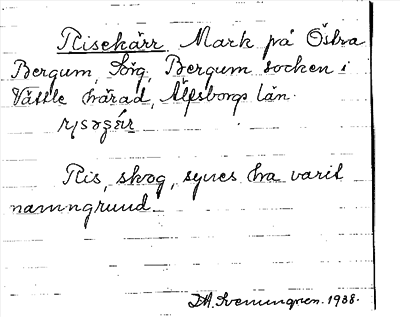 Risekärr, Mark på Östra
Bergum, Sörg, Bergum socken i
Vättle härad, Älfsborgs län.
Ris, skog, synes ha varit
namngrund.
1938.